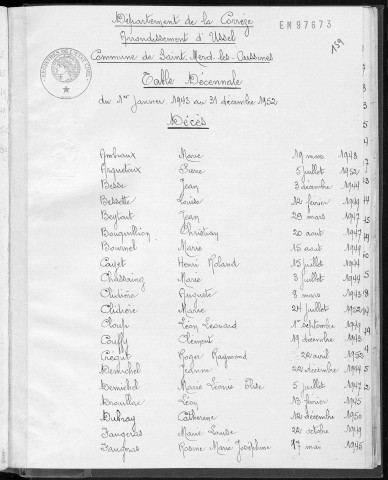 Département de la Corrèze
EM97673
Arrondissement d'Ussel
139
Commune de Saint Merd-les-Oussines
Table Décennale
du 1er janvier 1943 au 31 décembre 1952
Décès
Marie 19 mars 1948
Pierre 5 juillet 1952
Besse Jean 3 décembre 1944
Bessette Louise 12 février 1949
Beyfort Jean 28 mars 1947
Christian 20 août 1947
Bournel Marie 15 août 1949
Cazet Henri Roland 15 juillet 1944
Chassaing Marie 3 juillet 1944
Auguste 8 mars 1943
Marie 24 juillet 1952
Cloup Léon Léonard 1er septembre 1949
Couffy Clément 19 décembre 1943
Créquit Roger Raymond 22 avril 1950
Demichel Jeanne 22 décembre 1944
Demichel Marie Léonie Elise 5 juillet 1947
Drouillac Léon 13 février 1945
Dubray Catherine 12 décembre 1950
Faugeras Marie Louise 22 octobre 1949
Faugnas Rosine Marie Joséphine 17 mai 1946